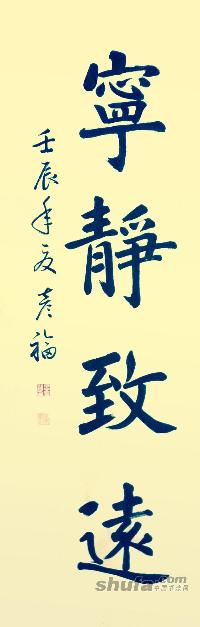 寧靜致遠
壬辰年夏彦福
shufa.com
中国书法网